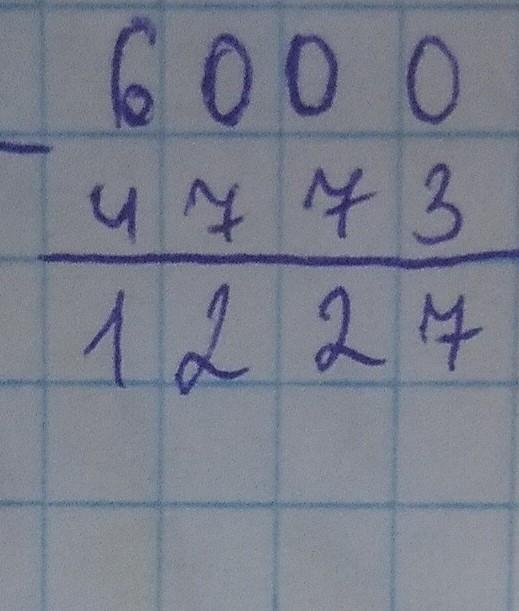 6000
-
4773
1227